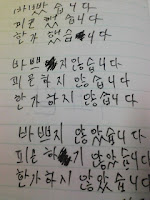 바빴습니다
피곤했습니다
한가했습니다
바쁘지않습니다
피곤하지않습니다
한가하지않습니다
바쁘지않았습니다
피곤하지않았습니다
한가하지않았습니다